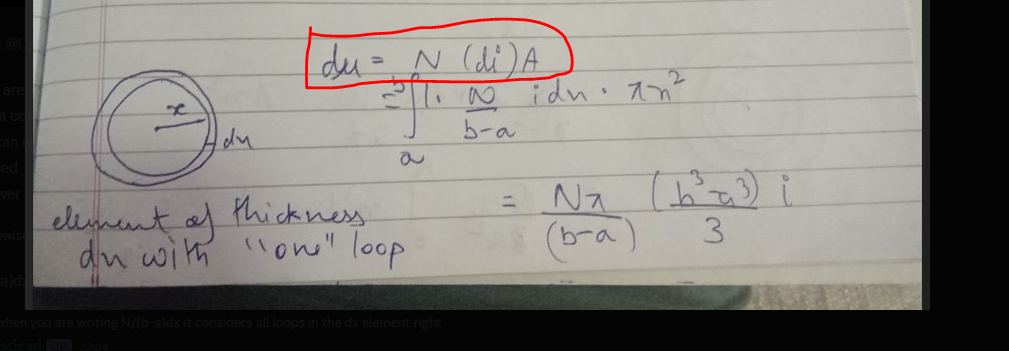 dμ = N (di) A
= ∫ₐᵇ 1. N/(b-a) i dx · πx²
x
dx
= Nπ/(b-a) (b³-a³)/3 i
element of thickness
dx with "one" loop
when you are writing N/(b-a)dx it considers all loops in the dx element right